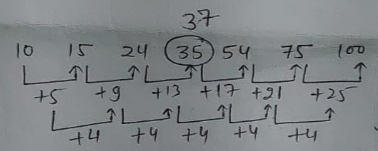 37
10 15 24 35 54 75 100
+5 +9 +13 +17 +21 +25
+4 +4 +4 +4 +4